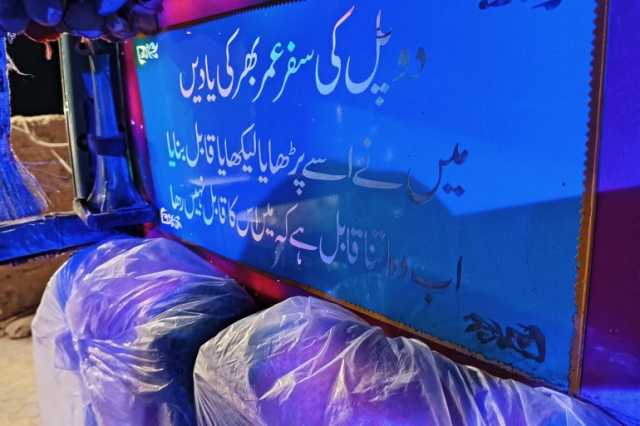 دو پل کی سفر عمر بھر کی یادیں
میں نے اسے پڑھایا لیکھایا قابل بنایا
اب وہ اتنا قابل ہے کہ میں اس کا قابل نہیں رھا